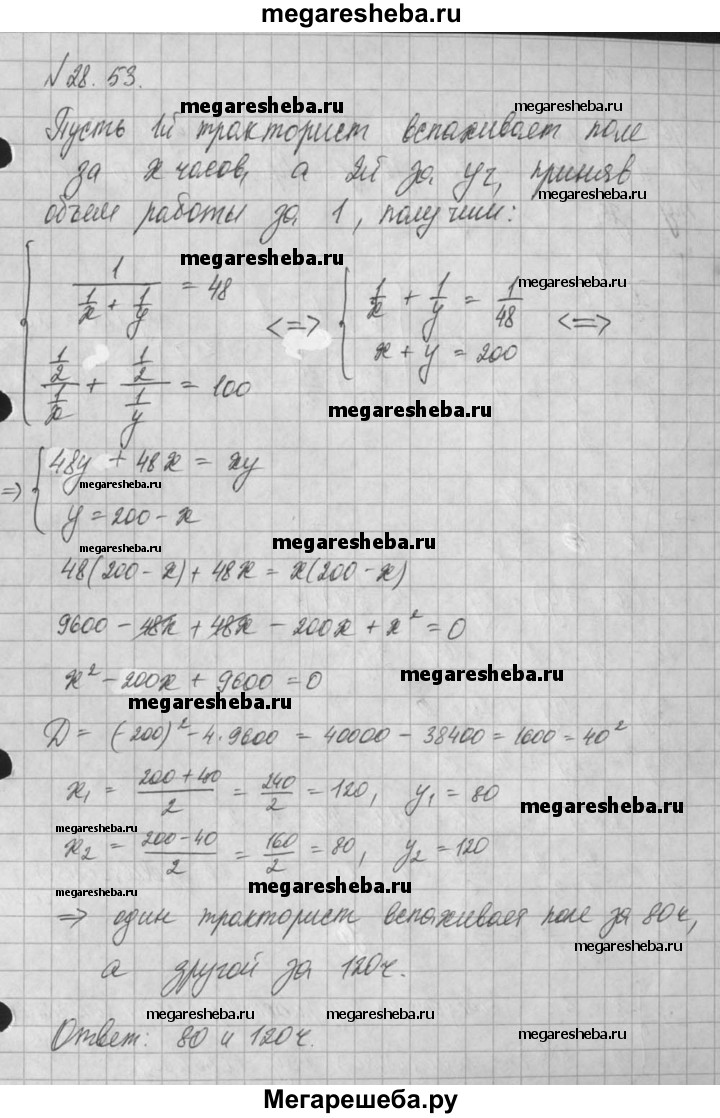 megaresheba.ru
№28.53.
megaresheba.ru megaresheba.ru
Пусть 1й тракторист вспахивает поле
за x часов, а 2й за y ч, приняв
megaresheba.ru
объем работы за 1, получим:
megaresheba.ru
{ 1/(1/x + 1/y) = 48 <=> { 1/x + 1/y = 1/48 <=>
megaresheba.ru
(1/2)/(1/x) + (1/2)/(1/y) = 100 x + y = 200
megaresheba.ru
=> { 48y + 48x = xy
megaresheba.ru
y = 200 - x
megaresheba.ru megaresheba.ru
48(200 - x) + 48x = x(200 - x)
9600 - 48x + 48x - 200x + x² = 0
x² - 200x + 9600 = 0
megaresheba.ru
megaresheba.ru
D = (-200)² - 4·9600 = 40000 - 38400 = 1600 = 40²
x₁ = (200+40)/2 = 240/2 = 120, y₁ = 80
megaresheba.ru
megaresheba.ru
x₂ = (200-40)/2 = 160/2 = 80, y₂ = 120
megaresheba.ru megaresheba.ru
=> один тракторист вспахивает поле за 80ч,
megaresheba.ru
а другой за 120ч.
megaresheba.ru megaresheba.ru
Ответ: 80 и 120ч.
megaresheba.ru
Мегарешеба.ру